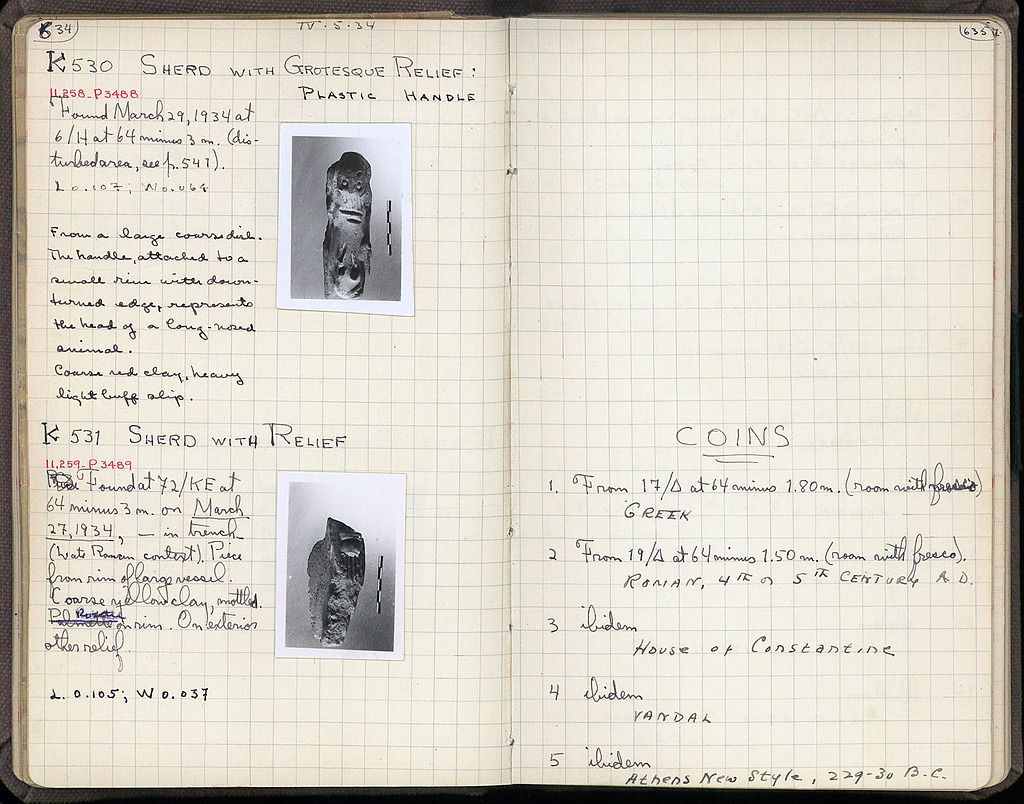 634
IV·5·34
K 530 SHERD WITH GROTESQUE RELIEF:
PLASTIC HANDLE
II,258-P3488
Found March 29, 1934 at
6/H at 64 minus 3 m. (dis-
turbed area, see p. 547).
L 0.107; W 0.064
From a large coarse dish.
The handle, attached to a
small rim with down-
turned edge, represents
the head of a long-nosed
animal.
Coarse red clay, heavy
light buff slip.
K 531 SHERD WITH RELIEF
II,259-P3489
Found at 72/KE at
64 minus 3 m. on March
27, 1934, — in trench
(Late Roman context). Piece
from rim of large vessel.
Coarse yellow clay, mottled.
Palmette Rosette on rim. On exterior
other relief.
L. 0.105; W 0.037
635
COINS
1. From 17/Δ at 64 minus 1.80 m. (room with fresco)
GREEK
2 From 19/Δ at 64 minus 1.50 m. (room with fresco).
ROMAN, 4TH or 5TH CENTURY A.D.
3 ibidem
House of Constantine
4 ibidem
VANDAL
5 ibidem
Athens New Style, 229-30 B.C.